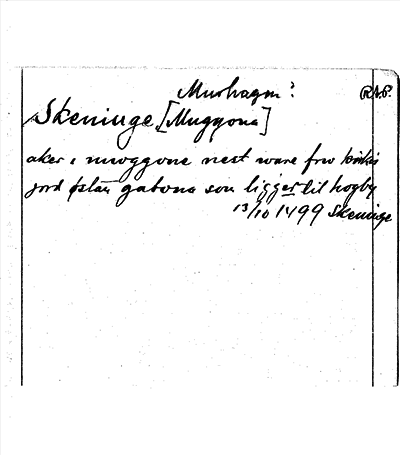 Murhagen? RAP.
Skeninge [Muggona]
aker i mwggone nest ware frw kirkio
jord østan gatona som ligger til hogby
13/10 1499 Skeninge